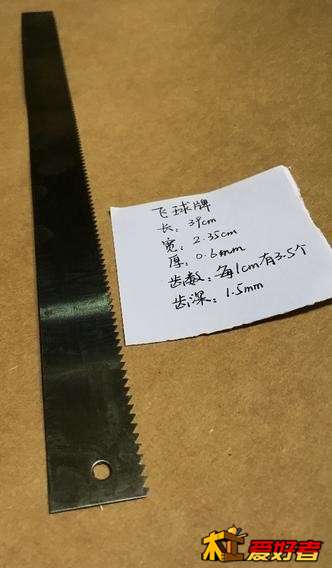 飞球牌
长：39cm
宽：2.35cm
厚：0.6mm
齿数：每1cm有3.5个
齿深：1.5mm
木工爱好者